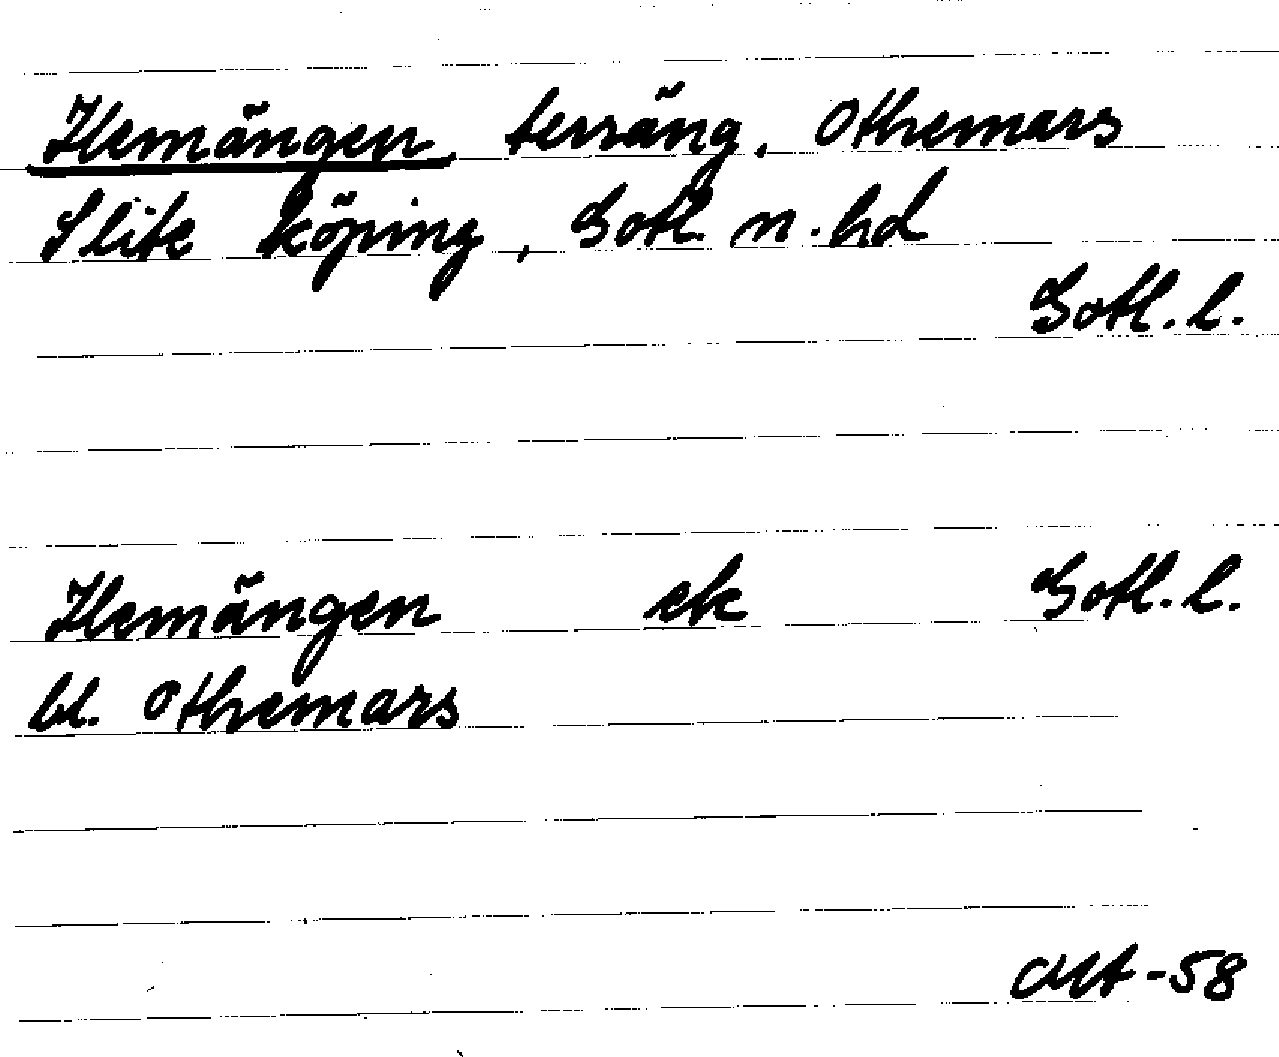 Hemängen, terräng, Othemars
Slite köping, Gotl. n. hd
Gotl. l.
Hemängen ek Gotl. l.
bl. Othemars
-58